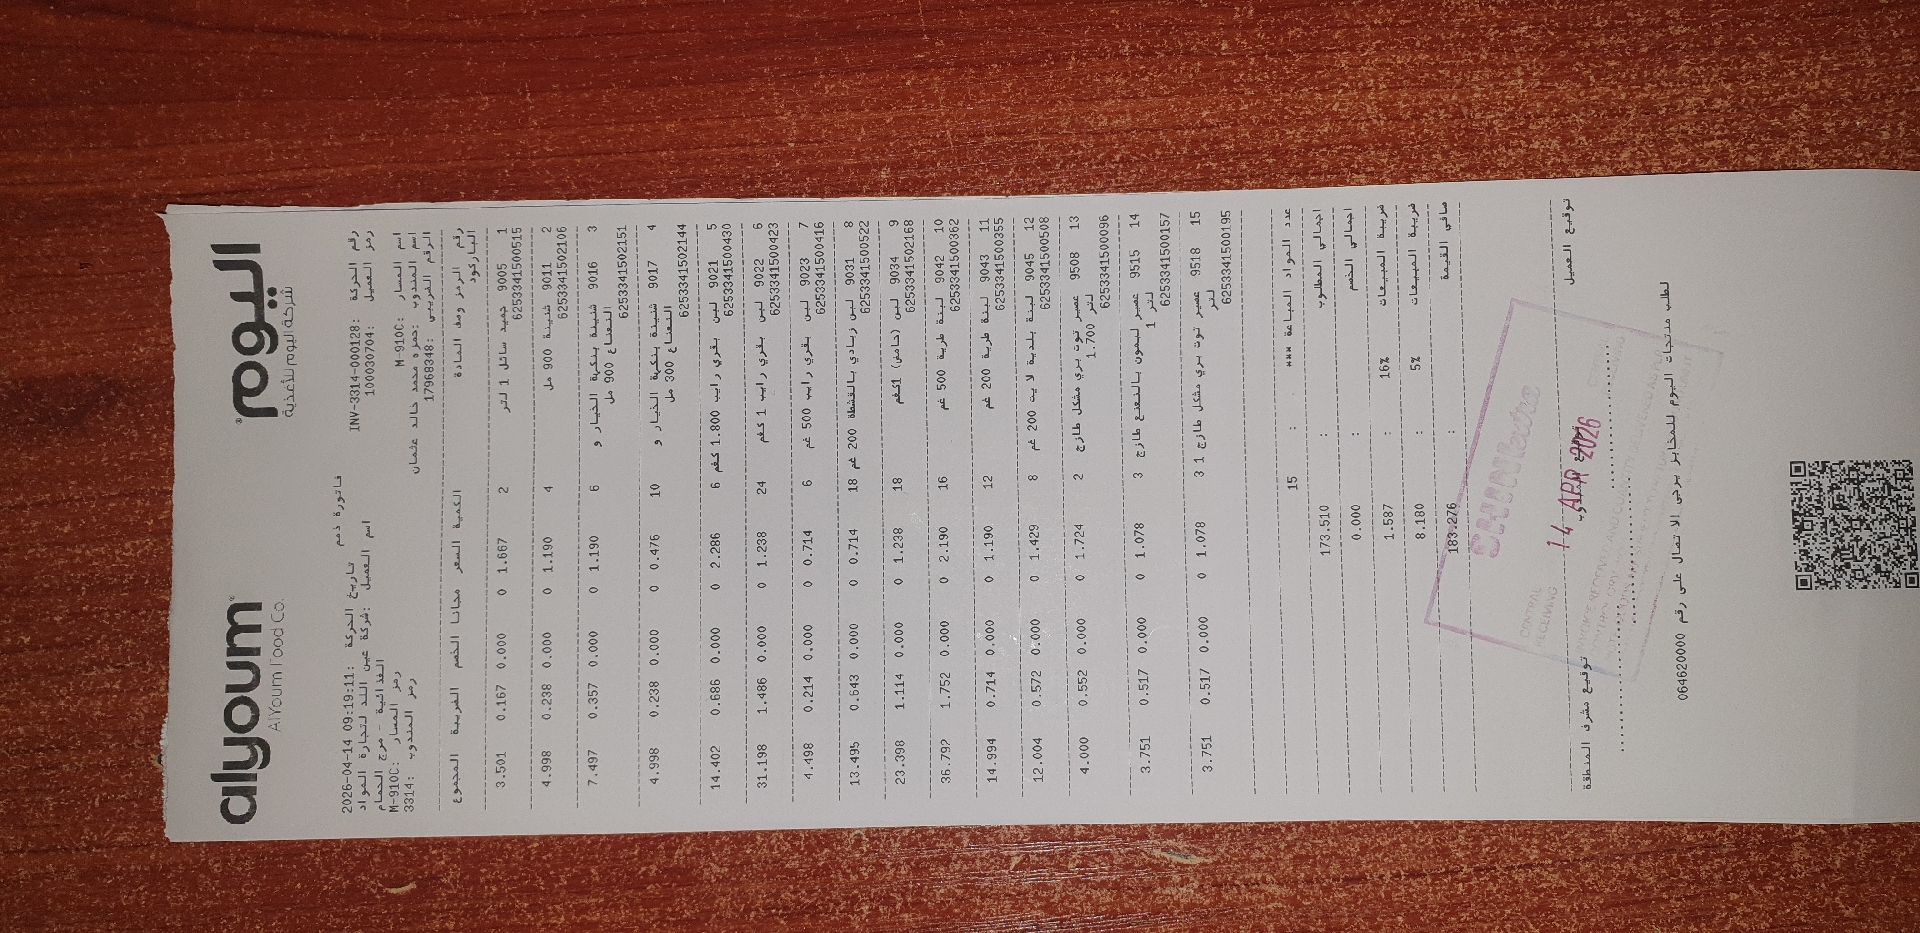 alyoum اليوم
AlYoum Food Co. شركة اليوم للأغذية
فاتورة ذمم
رقم الحركة: INV-3314-000128 تاريخ الحركة: 2026-04-14 09:19:11
رمز العميل: 1000030704 اسم العميل: شركة عبين اللند لتجارة المواد الغذائية - مرج الحمام
اسم المسار: M-910C رمز المسار: M-910C
اسم المندوب: حمزه محمد خالد عثمان رمز المندوب: 3314
الرقم الضريبي: 17968348
رقم الرمز وصف المادة الكمية السعر مجانا الخصم الضريبة المجموع
الباركود
1 9005 جميد سائل 1 لتر 2 1.667 0 0.000 0.167 3.501
6253341500515
2 9011 شنينة 900 مل 4 1.190 0 0.000 0.238 4.998
6253341502106
3 9016 شنينة بنكهة الخيار و 6 1.190 0 0.000 0.357 7.497
النعناع 900 مل
6253341502151
4 9017 شنينة بنكهة الخيار و 10 0.476 0 0.000 0.238 4.998
النعناع 300 مل
6253341502144
5 9021 لبن بقري رايب 1.800 كغم 6 2.286 0 0.000 0.686 14.402
6253341500430
6 9022 لبن بقري رايب 1 كغم 24 1.238 0 0.000 1.486 31.198
6253341500423
7 9023 لبن بقري رايب 500 غم 6 0.714 0 0.000 0.214 4.498
6253341500416
8 9031 لبن زبادي بالقشطة 200 غم 18 0.714 0 0.000 0.643 13.495
6253341500522
9 9034 لبن (حامض) 1كغم 18 1.238 0 0.000 1.114 23.398
6253341502168
10 9042 لبنة طرية 500 غم 16 2.190 0 0.000 1.752 36.792
6253341500362
11 9043 لبنة طرية 200 غم 12 1.190 0 0.000 0.714 14.994
6253341500355
12 9045 لبنة بلدية لايت 200 غم 8 1.429 0 0.000 0.572 12.004
6253341500508
13 9508 عصير توت بري مشكل طازج 2 1.724 0 0.000 0.552 4.000
1.700 لتر
6253341500096
14 9515 عصير ليمون بالنعنع طازج 3 1.078 0 0.000 0.517 3.751
1 لتر
6253341500157
15 9518 عصير توت بري مشكل طازج 1 3 1.078 0 0.000 0.517 3.751
لتر
6253341500195
عدد المواد المباعة *** : 15
اجمالي المطلوب : 173.510
اجمالي الخصم : 0.000
ضريبة المبيعات 16% : 1.587
ضريبة المبيعات 5% : 8.180
صافي القيمة : 183.276
CENTRAL
RECEIVING
14 APR 2026
توقيع العميل
توقيع مشرف المنطقة
لطلب منتجات اليوم للمخابز يرجى الاتصال على رقم 064620000